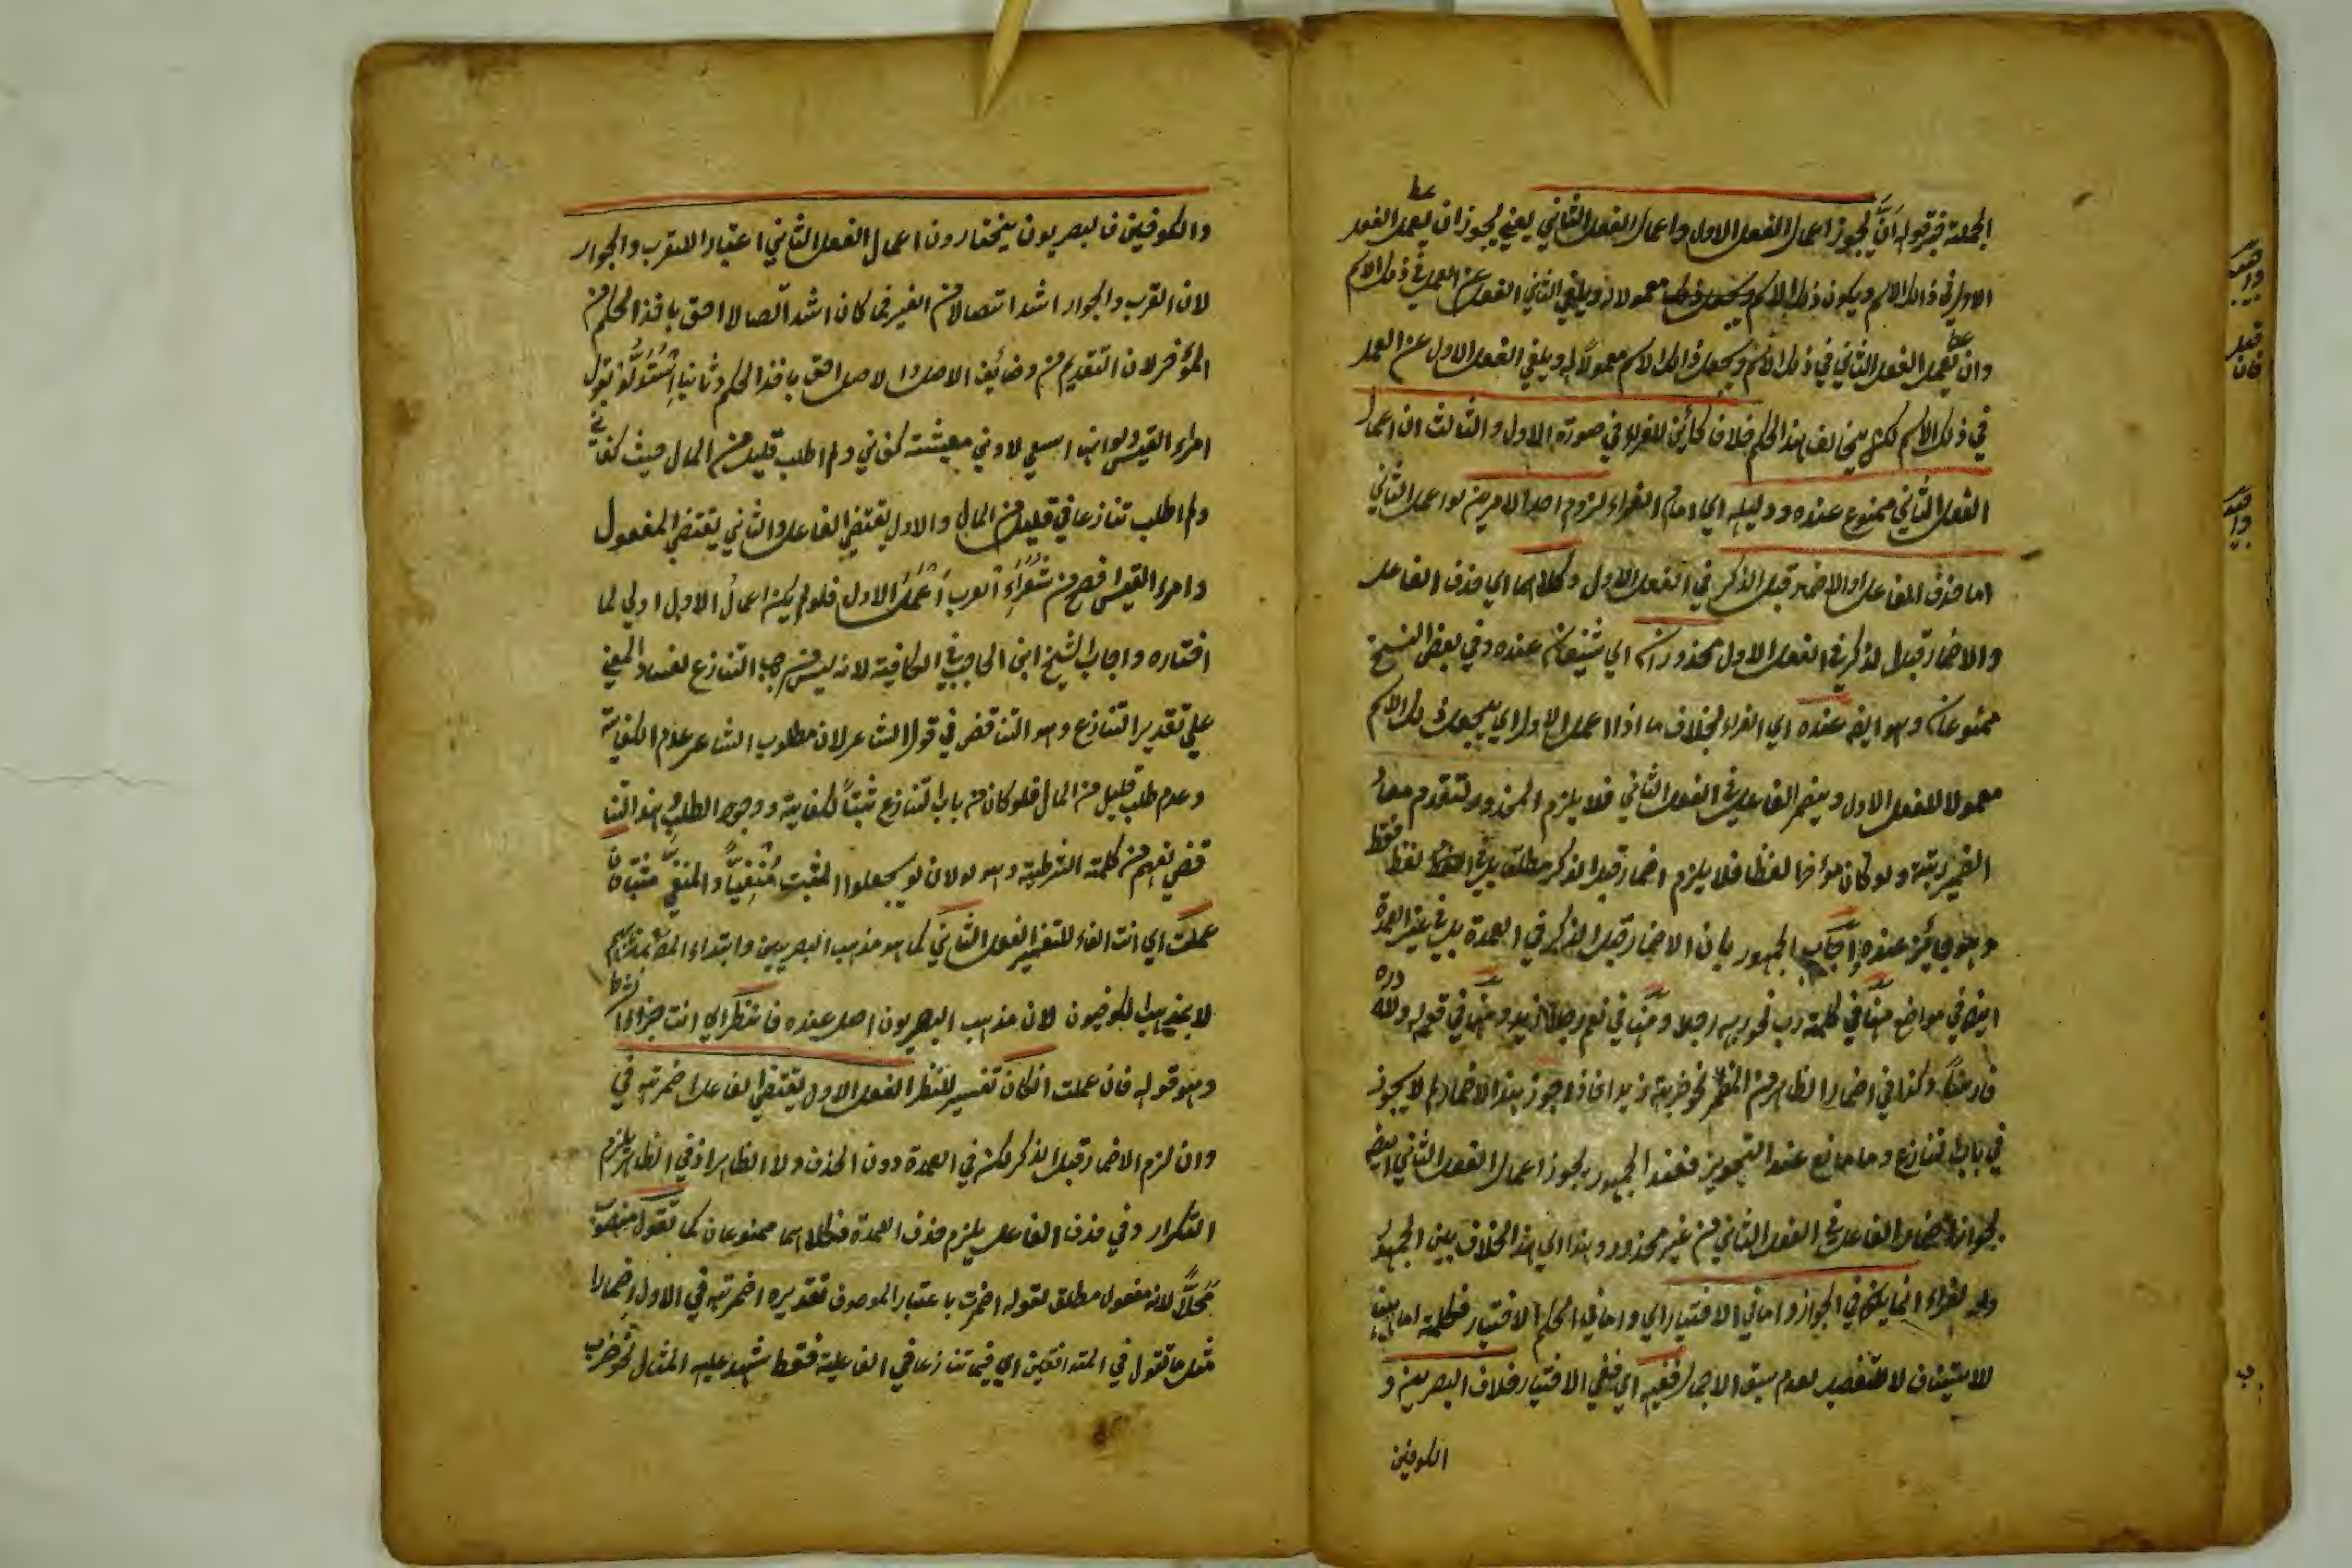 الجملة خبر قوله ان يجوز اعمال الفعل الاول واعمال الفعل الثاني يعني يجوز ان يعمل الفعل
الاول في ذلك الاسم ويكون ذلك الاسم معمولا له ويلغي الثاني الفعل عن العمل في ذلك الاسم
وان يعمل الفعل الثاني في ذلك الاسم ويجعل ذلك الاسم معمولا له ويلغي الفعل الاول عن العمل
في ذلك الاسم لكن يخالف هذا الحكم خلافا كائن للفراء في صورة الاول والثالث ان اعمال
الفعل الثاني ممنوع عنده ودليله اي امام الفراء لزوم احد الامرين لو اعمل الثاني
اما حذف الفاعل او الاضمار قبل الذكر في الفعل الاول وكلاهما اي حذف الفاعل
والاضمار قبل الذكر في الفعل الاول محذوران اي عنده وفي بعض النسخ
ممنوعان وهو ايضا عنده اي الفراء بخلاف ما اذا اعمل الاول اي يجعل ذلك الاسم
معمولا للفعل الاول ويضمر الفاعل في الفعل الثاني فلا يلزم المحذور لتقدم معاد
الضمير رتبة ولو كان مؤخرا لفظا فلا يلزم اضمار قبل الذكر مطلقا بل في لفظ فقط
وهو جائز عنده اجاب الجمهور بان الاضمار قبل الذكر في العمدة بل في غير العمدة
ايضا في مواضع منها في كلمة رب نحو ربه رجلا ومنها في نعم رجلا زيد ومنها في قوله
وكذا في اضمار الظاهر من المضمر نحو ضربته زيدا فاذا جوز هذا الاضمار لم لا يجوز
في باب التنازع وما مانع عند التجويز فعند الجمهور يجوز اعمال الفعل الثاني ايضا
بجواز اضمار الفاعل في الفعل الثاني من غير محذور وهذا اي هذا الخلاف بين الجمهور
والفراء انما يكون في الجواز واما في الاختيار اي واما في الحكم الاختيار فكلمة اما
للاستيناف لا للتفصيل لعدم سبق الاجمال ففيه اي ففي الاختيار خلاف البصريين و
الكوفين
والكوفين فالبصريون يختارون اعمال الفعل الثاني اعتبارا للقرب والجوار
لان القرب والجوار اشد اتصالا من الغير فما كان اشد اتصالا احق باخذ الحكم من
المؤخر لان التقديم من وضائف الاصل والاصل احق باخذ الحكم وثانيا استدلوا بقول
امراء القيس ولو انما اسعى لادنى معيشة كفاني ولم اطلب قليل من المال حيث كفاني
ولم اطلب تنازعا في قليل من المال والاول يقتضي الفاعل والثاني يقتضي المفعول
وامراء القيس افصح من شعراء العرب اعمل الاول فلو لم يكن اعمال الاول اولى لما
اختاره واجاب الشيخ ابن الحاجب في الكافية لانه ليس من باب التنازع لفساد المعنى
على تقدير التنازع وهو التناقض في قول الشاعر لان مطلوب الشاعر عدم الكفاية
وعدم طلب قليل من المال فلو كان من باب التنازع ثبتا لكفاية ووجود الطلب وهذا التنا
قض نفهم من كلمة الشرطية وهو لو لان لو يجعلوا المثبت منفيا والمنفي مثبتا فان
عملت اي انت الفاء للتفسير الفعل الثاني كما هو مذهب البصريين وابتداء المص بمذهبهم
لا بمذهب الكوفيون لان مذهب البصريون اصل عنده فانظر اي انت جزاء الشرط
وهو قوله فان عملت ان كان تفسير للنظر الفعل الاول يقتضي الفاعل اضمرته في
وان لزم الاضمار قبل الذكر لكن في العمدة دون الحذف ولا الظاهر اذ في الظاهر يلزم
التكرار وفي حذف الفاعل يلزم حذف العمدة فكلاهما ممنوعان كما تقول منصوب
محلا لانه مفعول مطلق لقوله اضمرت باعتبار الموصوف تقديره اضمرته في الاول اضمارا
مثل ما تقول في المتوافقين اي فيما تنازعا في الفاعلية فقط شهد عليه المثال نحو ضرب